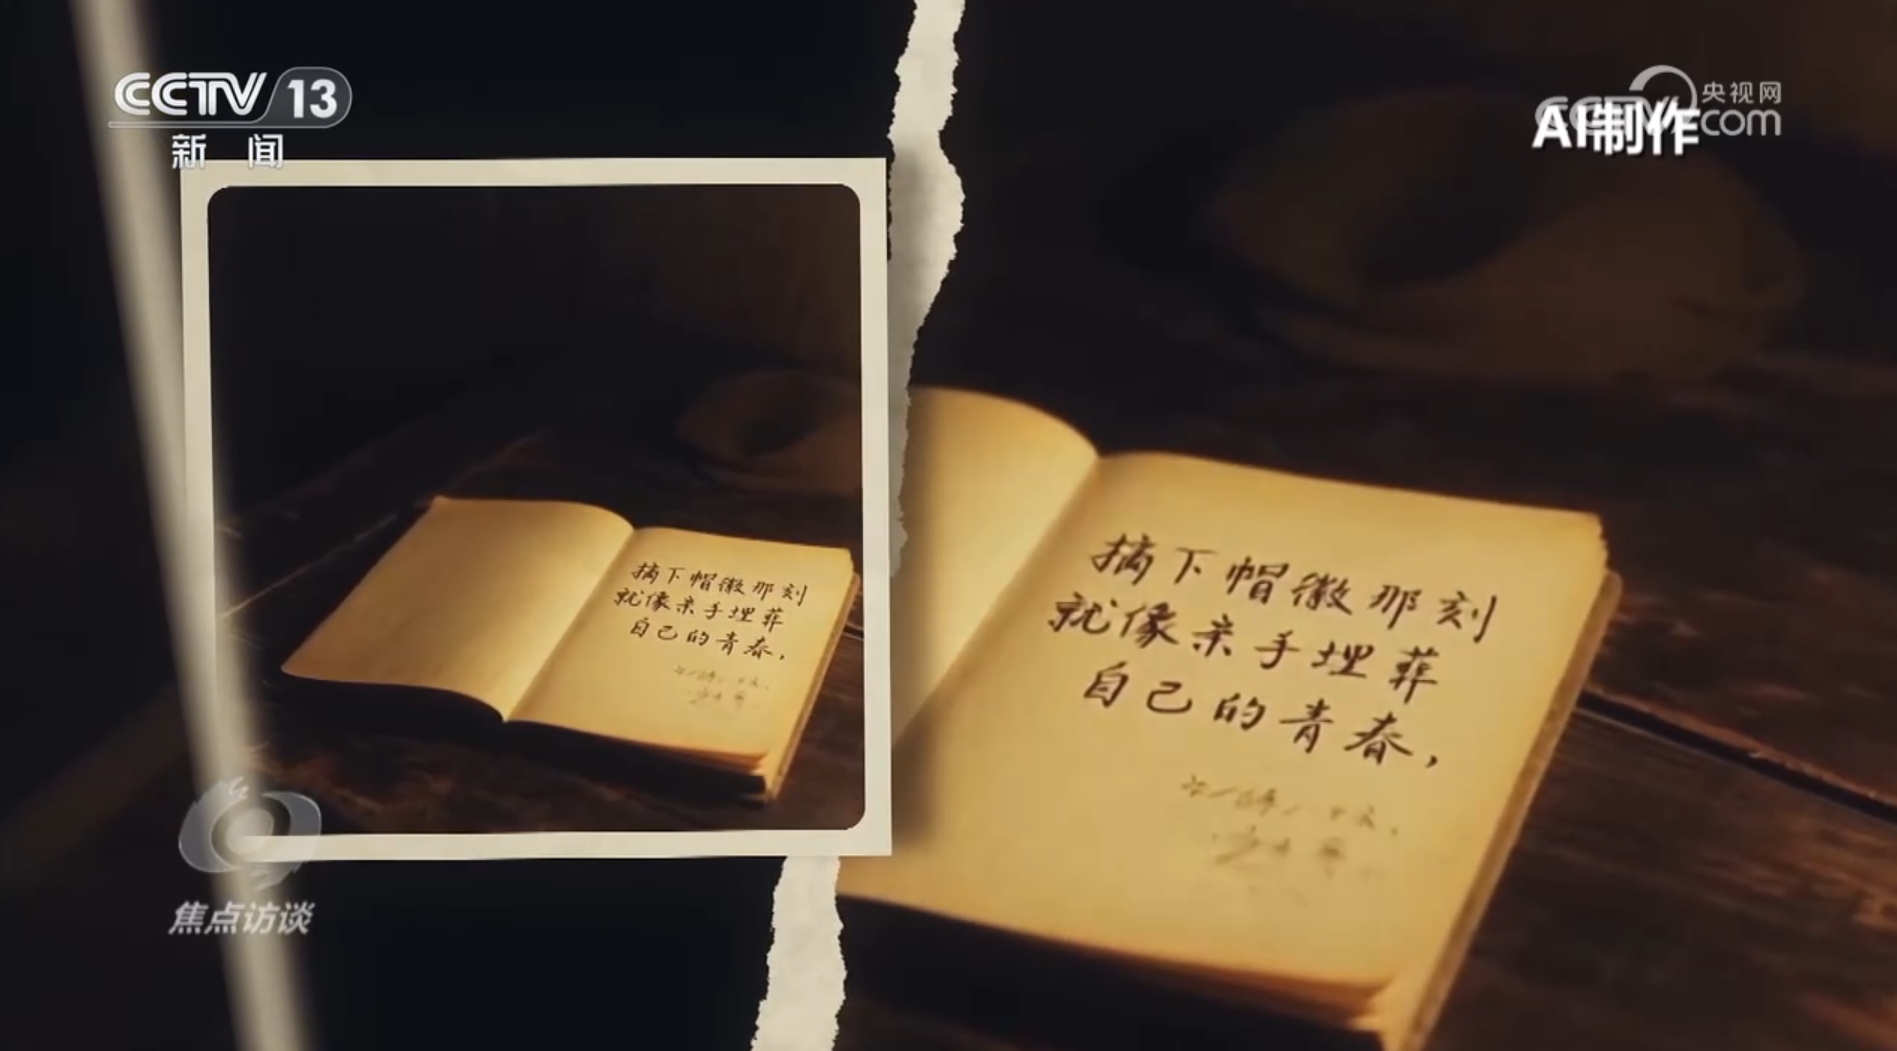 CCTV 13
新闻
央视网
CCTV.com
AI制作
摘下帽徽那刻
就像亲手埋葬
自己的青春,
摘下帽徽那刻
就像亲手埋葬
自己的青春,
焦点访谈